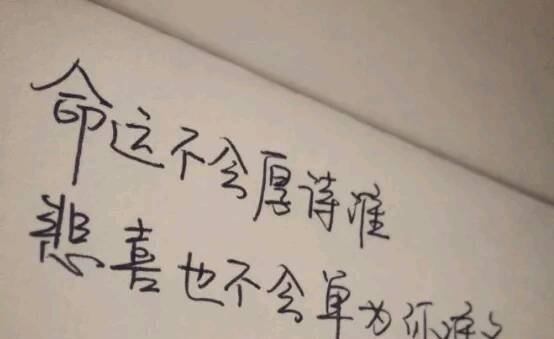 命运不会厚待谁
悲喜也不会单为你准